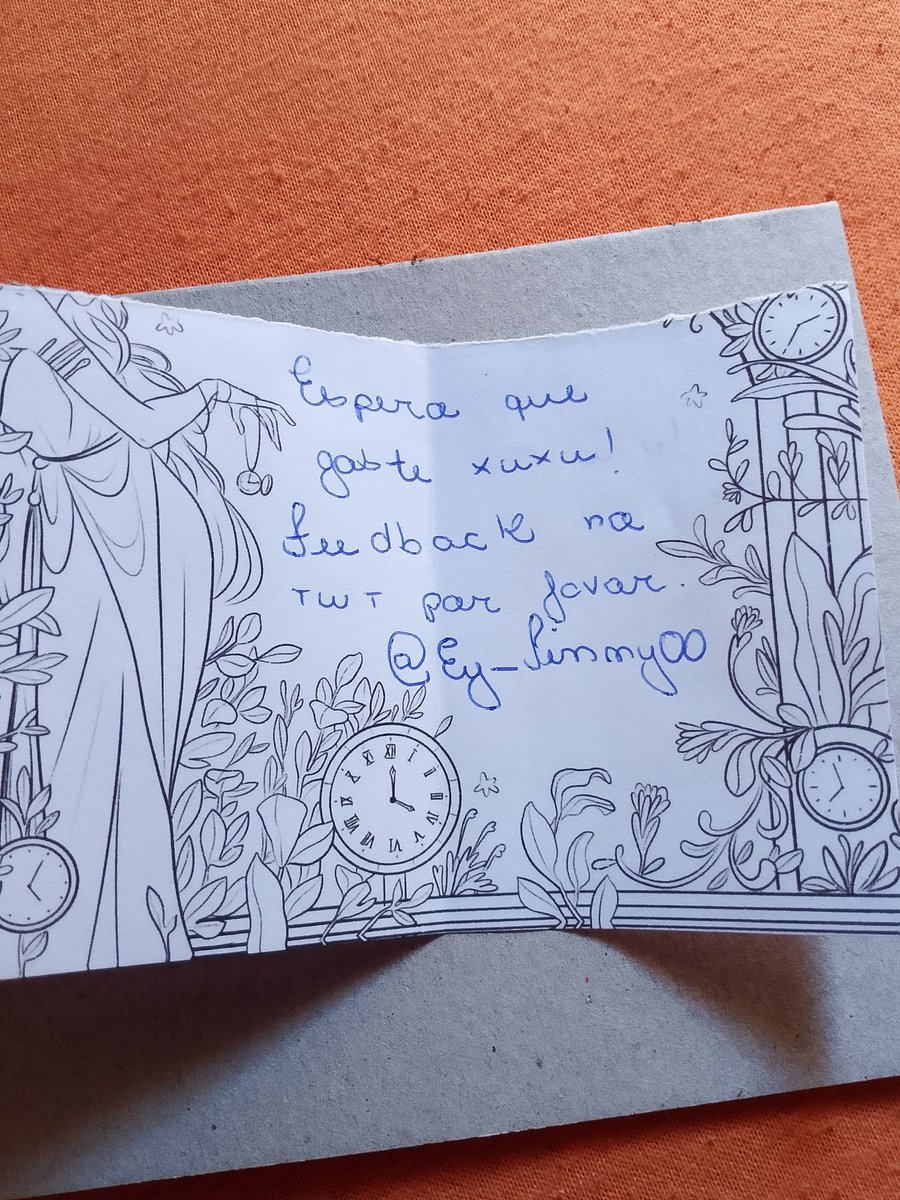 Espero que
goste xuxu!
Feedback no
TWT por favor.